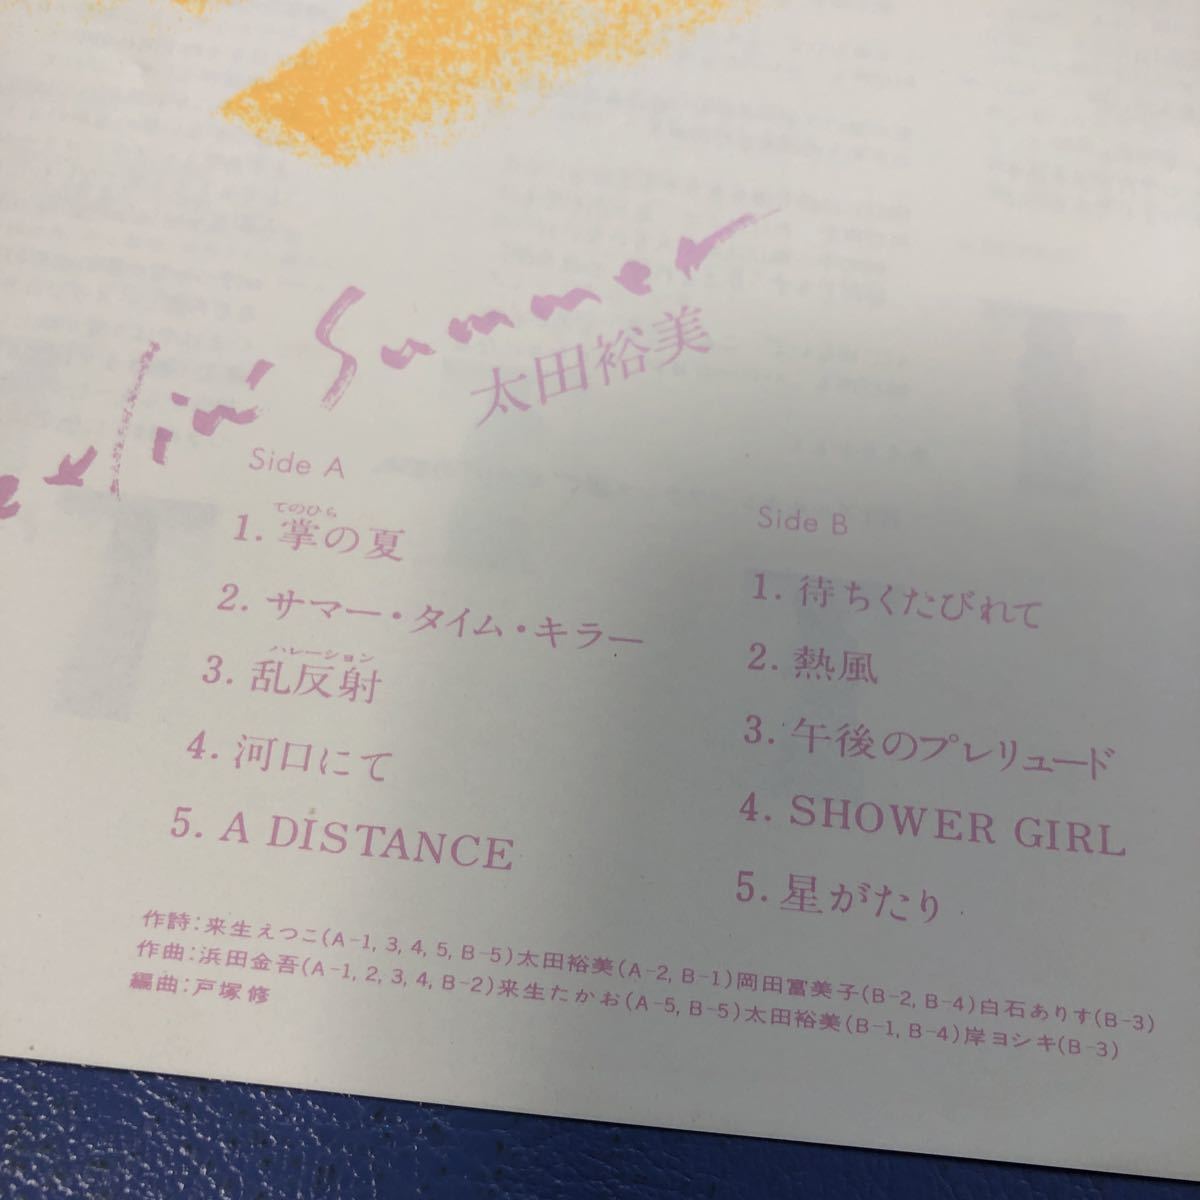 in' Summer
太田裕美
Side A
てのひら
1. 掌の夏
2. サマー・タイム・キラー
ハレーション
3. 乱反射
4. 河口にて
5. A DISTANCE
Side B
1. 待ちくたびれて
2. 熱風
3. 午後のプレリュード
4. SHOWER GIRL
5. 星がたり
作詩：来生えつこ(A-1, 3, 4, 5, B-5)太田裕美(A-2, B-1)岡田冨美子(B-2, B-4)白石ありす(B-3)
作曲：浜田金吾(A-1, 2, 3, 4, B-2)来生たかお(A-5, B-5)太田裕美(B-1, B-4)岸ヨシキ(B-3)
編曲：戸塚修